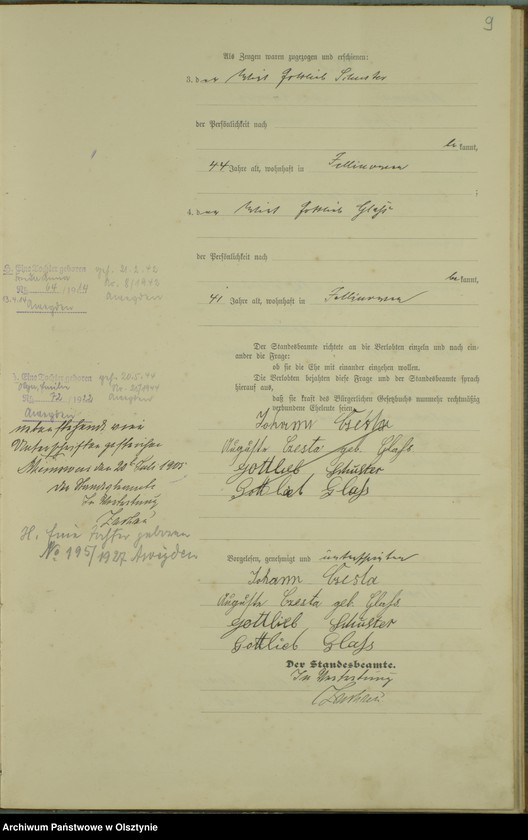 9
Als Zeugen waren zugezogen und erschienen:
3. der Wirt Gottlieb Schuster
der Persönlichkeit nach
bekannt,
44 Jahre alt, wohnhaft in
4. der Wirt Gottlieb Glaß
der Persönlichkeit nach
bekannt,
41 Jahre alt, wohnhaft in
Der Standesbeamte richtete an die Verlobten einzeln und nach einander die Frage:
ob sie die Ehe mit einander eingehen wollen.
Die Verlobten bejahten diese Frage und der Standesbeamte sprach
hierauf aus,
daß sie kraft des Bürgerlichen Gesetzbuchs nunmehr rechtmäßig
verbundene Eheleute seien.
Johann Czesta
Auguste Czesta geb. Glaß
Gottlieb Schuster
Gottlieb Glaß
Vorgelesen, genehmigt und unterschrieben
Johann Czesta
Auguste Czesta geb. Glaß
Gottlieb Schuster
Gottlieb Glaß
Der Standesbeamte.
In Vertretung
Eine Tochter geboren
geb. 21.2.42
Nr. 8/1943
Arweyden
Nr. 64 /1919
Arweyden
Eine Tochter geboren
geh. 20.5.44
Arweyden
Nr. 72 1922
Arweyden
Unterschriften gestrichen
Der Standesbeamte
In Vertretung
H. Eine Tochter geboren
No 195/1927 Arweyden
Archiwum Państwowe w Olsztynie